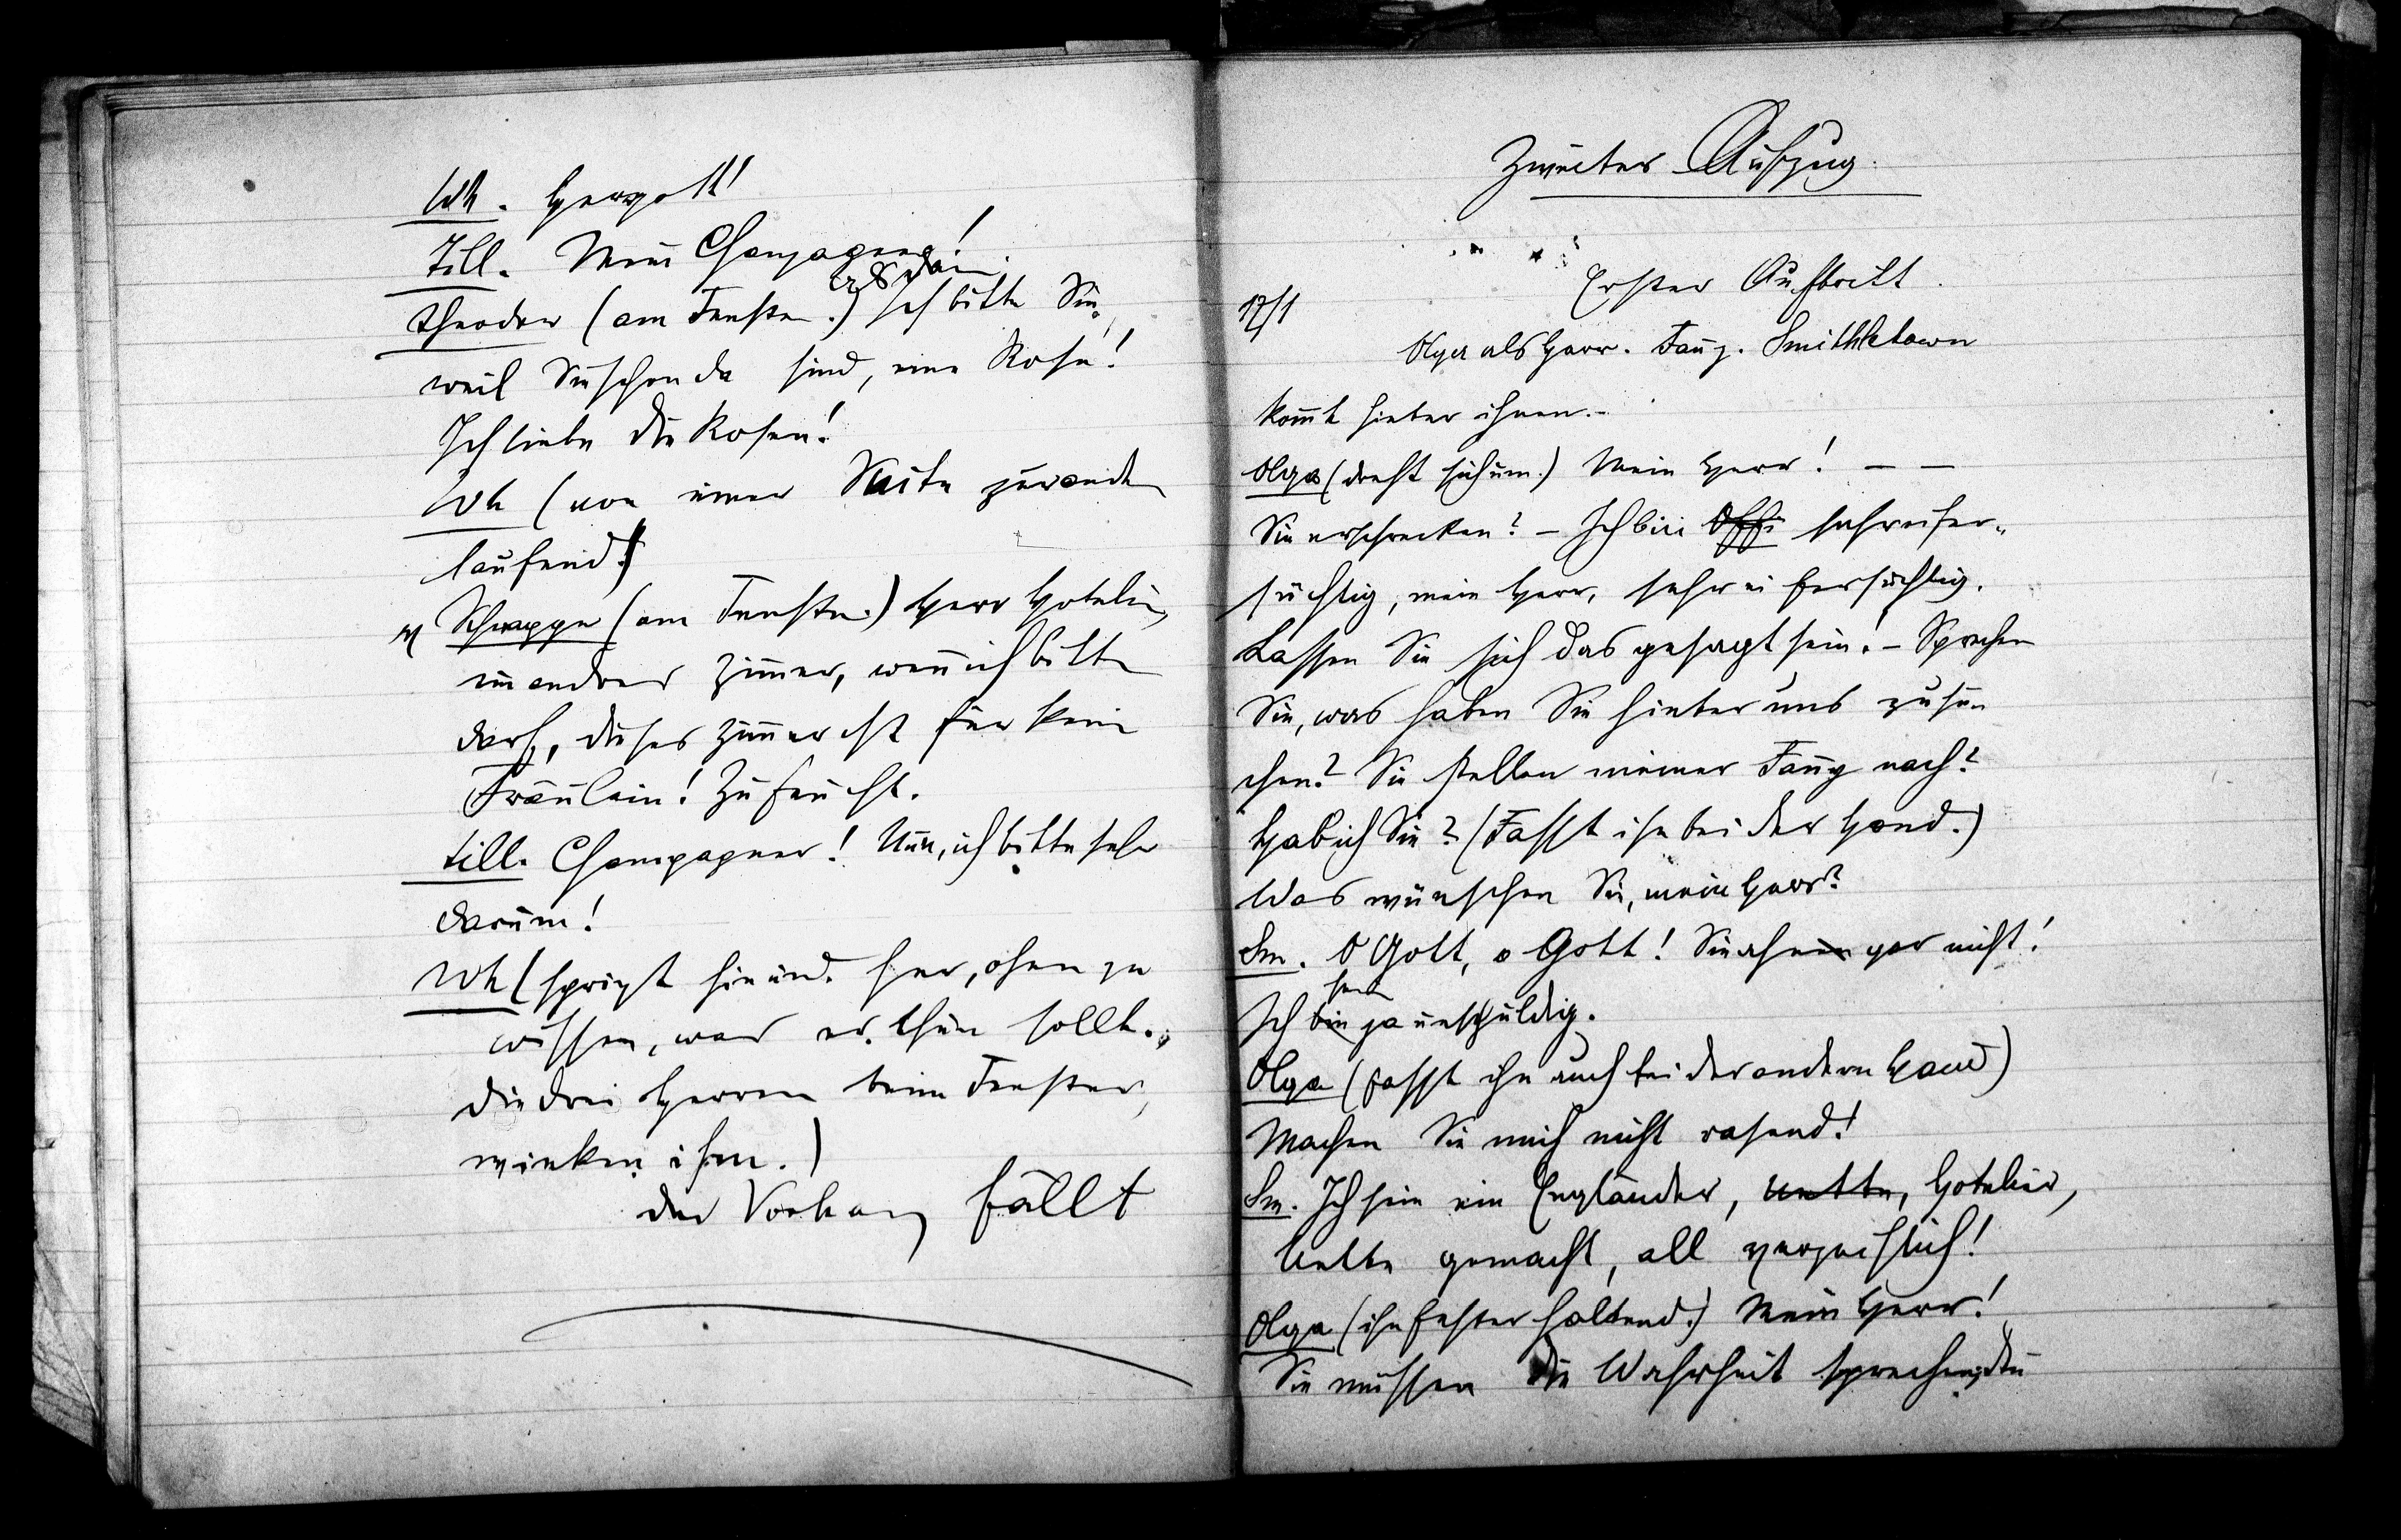 Wh. Herrgott!
Till. Mein Champagner!
Theodor (am Fenster.) Ich bitte Sie,
weil Sie schon da sind, eine Rose!
Ich liebe die Rosen!
Wh (von einer Seite zur andern
laufend!)
Schwappe (am Fenster.) Herr Hotelier,
ein andres Zimmer, wenn ich bitten
darf, dieses Zimmer ist für kein
Fräulein! Zu feucht.
Till. Champagner! Nun, ich bitte sehr
darum!
Wh (springt hin und her, ohne zu
wissen, was er thun sollte.,
die drei Herren beim Fenster,
winken ihm.)
der Vorhang fällt
Zweiter Aufzug.
Erster Auftritt.
17/1
Olga als Herr. Fanny. Smithletown
kommt hinter ihnen.-
Olga (dreht sich um.) Mein Herr! — —
Sie erschrecken? – Ich bin Offi sehr eifer-
süchtig, mein Herr, sehr eifersüchtig.
Lassen Sie sich das gesagt sein! – Sprechen
Sie, was haben Sie hinter uns zu su-
chen? Sie stellen meiner Fanny nach?
Hab ich Sie? (Fasst ihn bei der Hand.)
Was wünschen Sie, mein Herr?
Sm. O Gott, o Gott! Sie gar nicht!
sein
Ich bin ja unschuldig.
Olga (fasst ihn auch bei der andern Hand)
Machen Sie mich nicht rasend!
Sm. Ich sein ein Engländer, Uette, Hotelier,
Uette gemacht, all
Olga (ihn fester haltend.) Mein Herr!
Sie müssen die Wahrheit sprechen, die